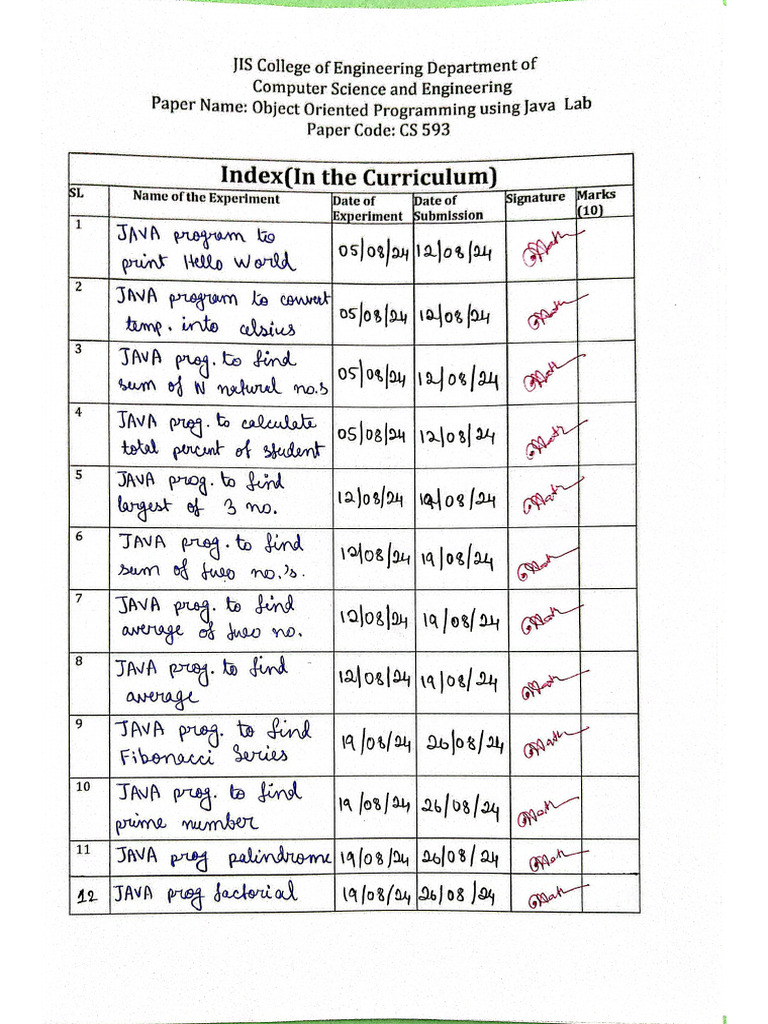 JIS College of Engineering Department of
Computer Science and Engineering
Paper Name: Object Oriented Programming using Java Lab
Paper Code: CS 593
Index(In the Curriculum)
SL Name of the Experiment Date of Experiment Date of Submission Signature Marks (10)
1 JAVA program to 05/08/24 12/08/24
print Hello World
2 JAVA program to convert 05/08/24 12/08/24
temp. into celsius
3 JAVA prog. to find 05/08/24 12/08/24
sum of N natural no.s
4 JAVA prog. to calculate 05/08/24 12/08/24
total percent of student
5 JAVA prog. to find 12/08/24 19/08/24
largest of 3 no.
6 JAVA prog. to find 12/08/24 19/08/24
sum of two no.'s.
7 JAVA prog. to find 12/08/24 19/08/24
average of two no.
8 JAVA prog. to find 12/08/24 19/08/24
average
9 JAVA prog. to find 19/08/24 26/08/24
Fibonacci Series
10 JAVA prog. to find 19/08/24 26/08/24
prime number
11 JAVA prog palindrome 19/08/24 26/08/24
12 JAVA prog factorial 19/08/24 26/08/24